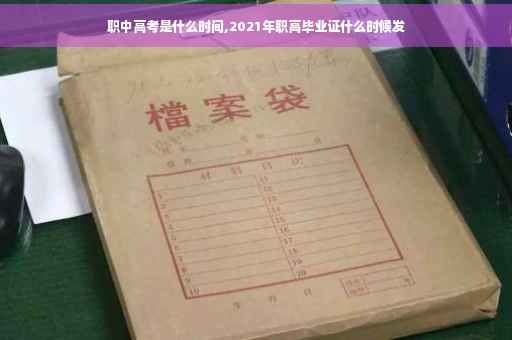 职中高考是什么时间,2021年职高毕业证什么时候发
檔案袋
材料目次
1 11
2 12
3 13
4 14
5 15
6 16
7 17
8 18
9 19
10 20
年 月 日